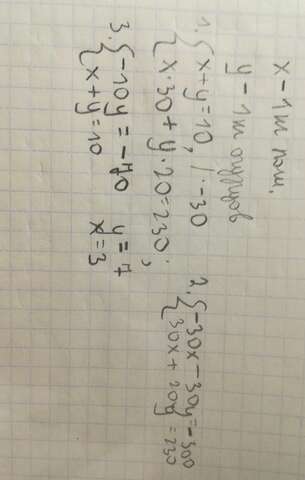 x - 1 т пом.
y - 1 т огурцов
1. { x + y = 10, / · -30
x · 30 + y · 20 = 230;
2. { -30x - 30y = -300
30x + 20y = 230
3. { -10y = -70 y = 7
x + y = 10 x = 3